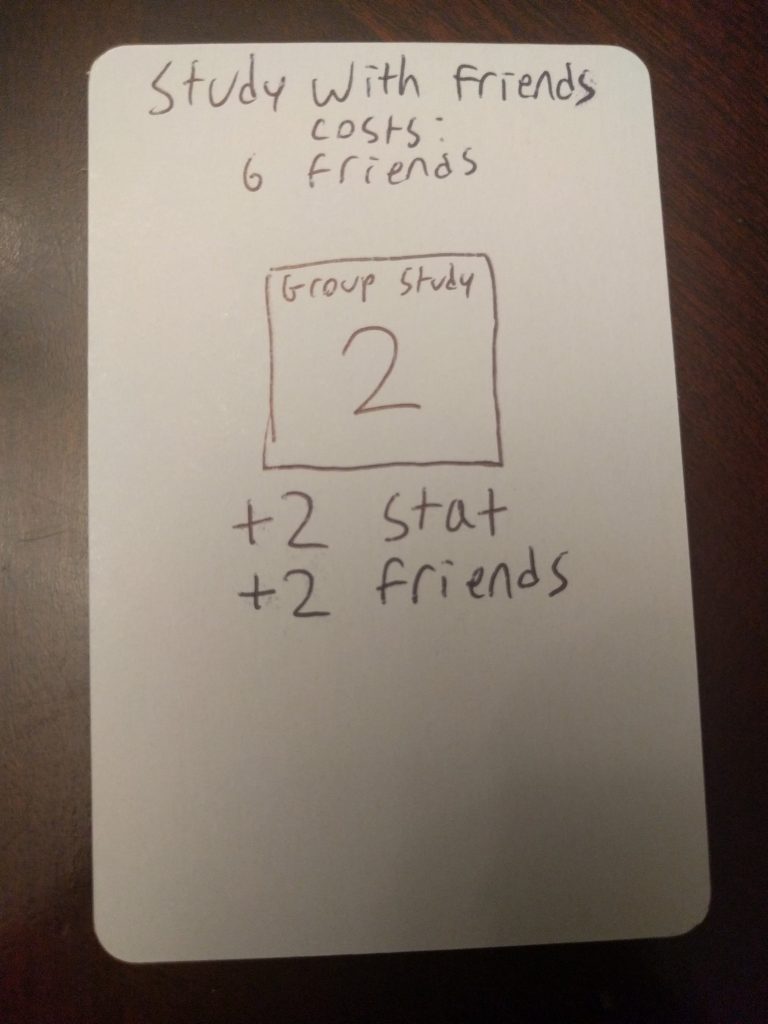 Study With Friends
costs:
6 friends
Group Study
2
+2 stat
+2 friends